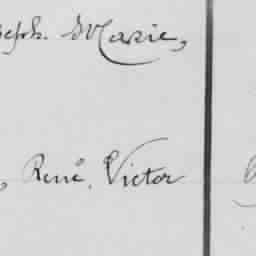 seph. Marie,
, René, Victor